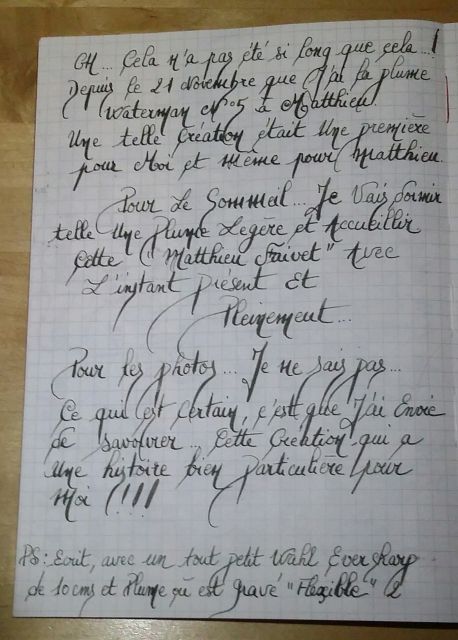 OH... Cela n'a pas été si long que cela...!
Depuis le 21 Novembre que J'ai la plume
Waterman N°5 à Matthieu.
Une telle Création était Une première
pour Moi et même pour Matthieu.
Pour Le Sommeil... Je Vais Dormir
telle Une Plume Légère et Accueillir
Cette "Matthieu Faivet" Avec
L'instant présent Et
Pleinement...
Pour les photos... Je ne sais pas...
Ce qui est Certain, c'est que J'ai Envie
de savourer... Cette Création qui a
Une histoire bien particulière pour
Moi !!!
PS: Ecrit, avec un tout petit Wahl Eversharp
de 10cms et Plume où est gravé "Flexible" 2